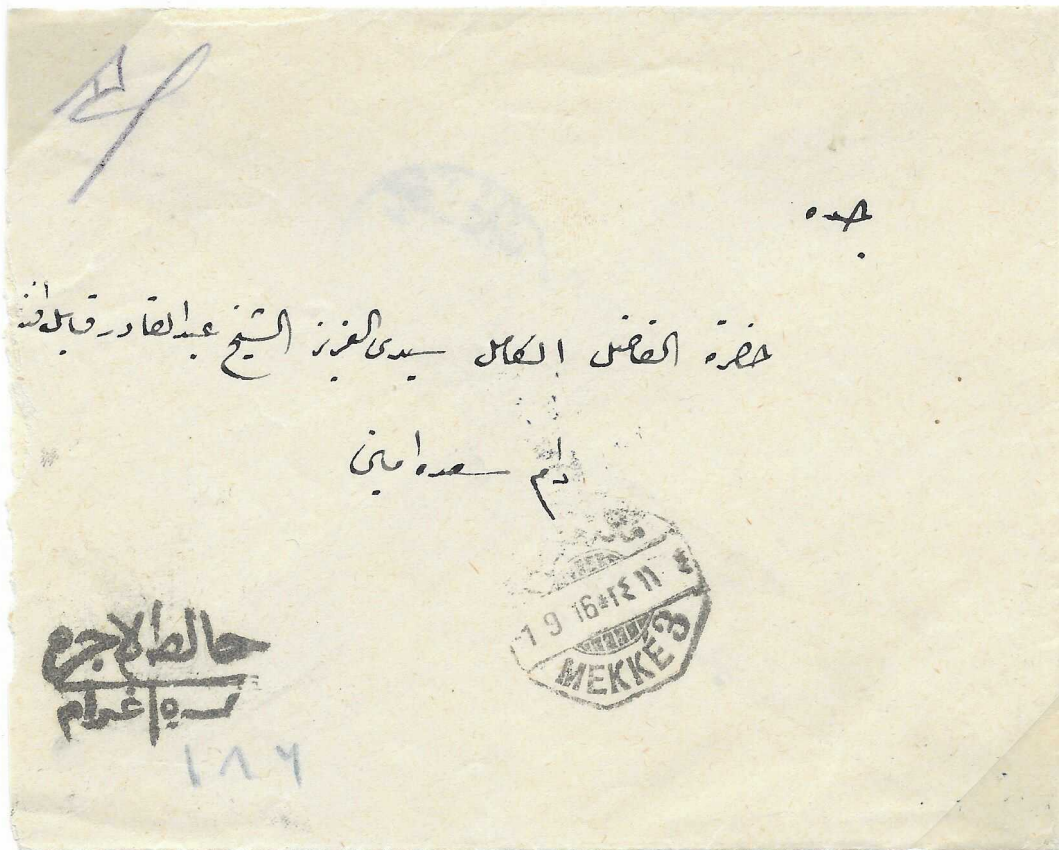 جده
حضرة الفاضل الكامل سيدى العزيز الشيخ عبدالقادر قابل افند
دام سعده امين
1 9 16 * ٢٤ ١١ ٤
MEKKE 3
خالط الاجره
١٨٦